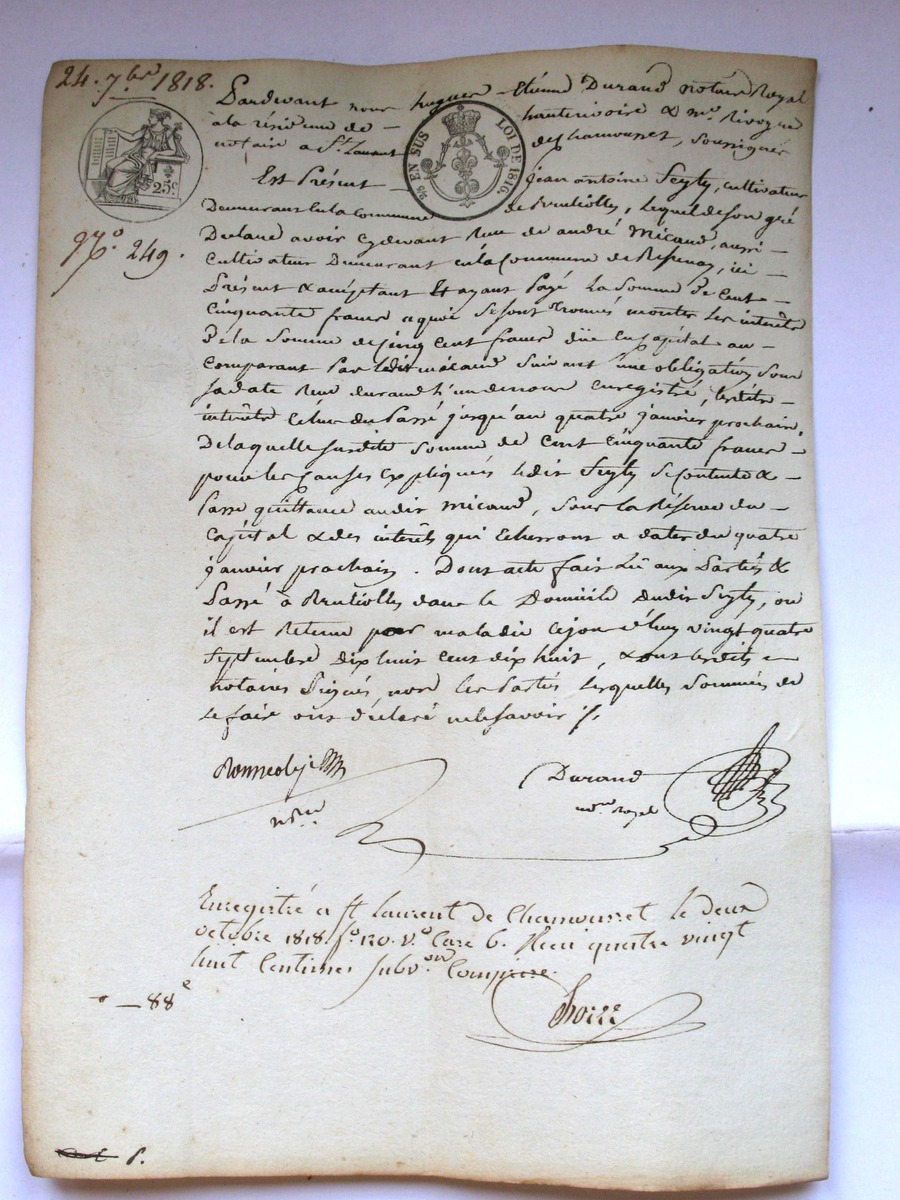 24. 7bre 1818.
Pardevant nous hugues Etienne Durand notaire Royal
à la résidence de hauterivoire & me. Rivoyre
notaire a St. Laurent de Chamousset, soussignés
25c.
25 EN SUS LOI DE 1816.
Est Présent Jean antoine Seyty, cultivateur
Demeurant En la Commune de Bruliolles, lequel de son gré
No. 249.
Declare avoir cydevant Reçu de andré Micaud, aussi
cultivateur Demeurant en la Commune de, ici
Présent & acceptant Et ayant Payé La Somme de Cent
Cinquante francs a quoi se sont trouvés monter les intérêts
De la Somme de Cinq Cent francs düe en Capital au
Comparant Par ledit micaud Suivant une obligation Sous
Sa date Reçue durand l'un de nous Enregistrée, lesdits
intérêts Echus du Passé jusqu'au quatre janvier prochain,
De laquelle Susdite Somme de Cent Cinquante francs
pour les Causes Expliquées ledit Seyty Se Contente &
Passe quittance audit micaud, Sous la Réserve du
Capital & des intérêts qui Echerront a dater du quatre
janvier prochain. Dont acte fait Lû aux Parties &
Passé à Brulliolles dans le Domicile dudit Seyty, où
il est Retenu par maladie Cejourd'huy vingt quatre
Septembre dix huit Cent dix huit, & ont lesdits
notaires Signés, non les Parties Lesquelles Sommées de
Le faire ont déclaré ne le Savoir
Durand
nore
nore Royal
Enregistré a St Laurent de Chamousset le deux
octobre 1818 fo. 130. Vo. Case 6. Reçu quatre vingt
huit Centimes Subvon Comprise.
88c